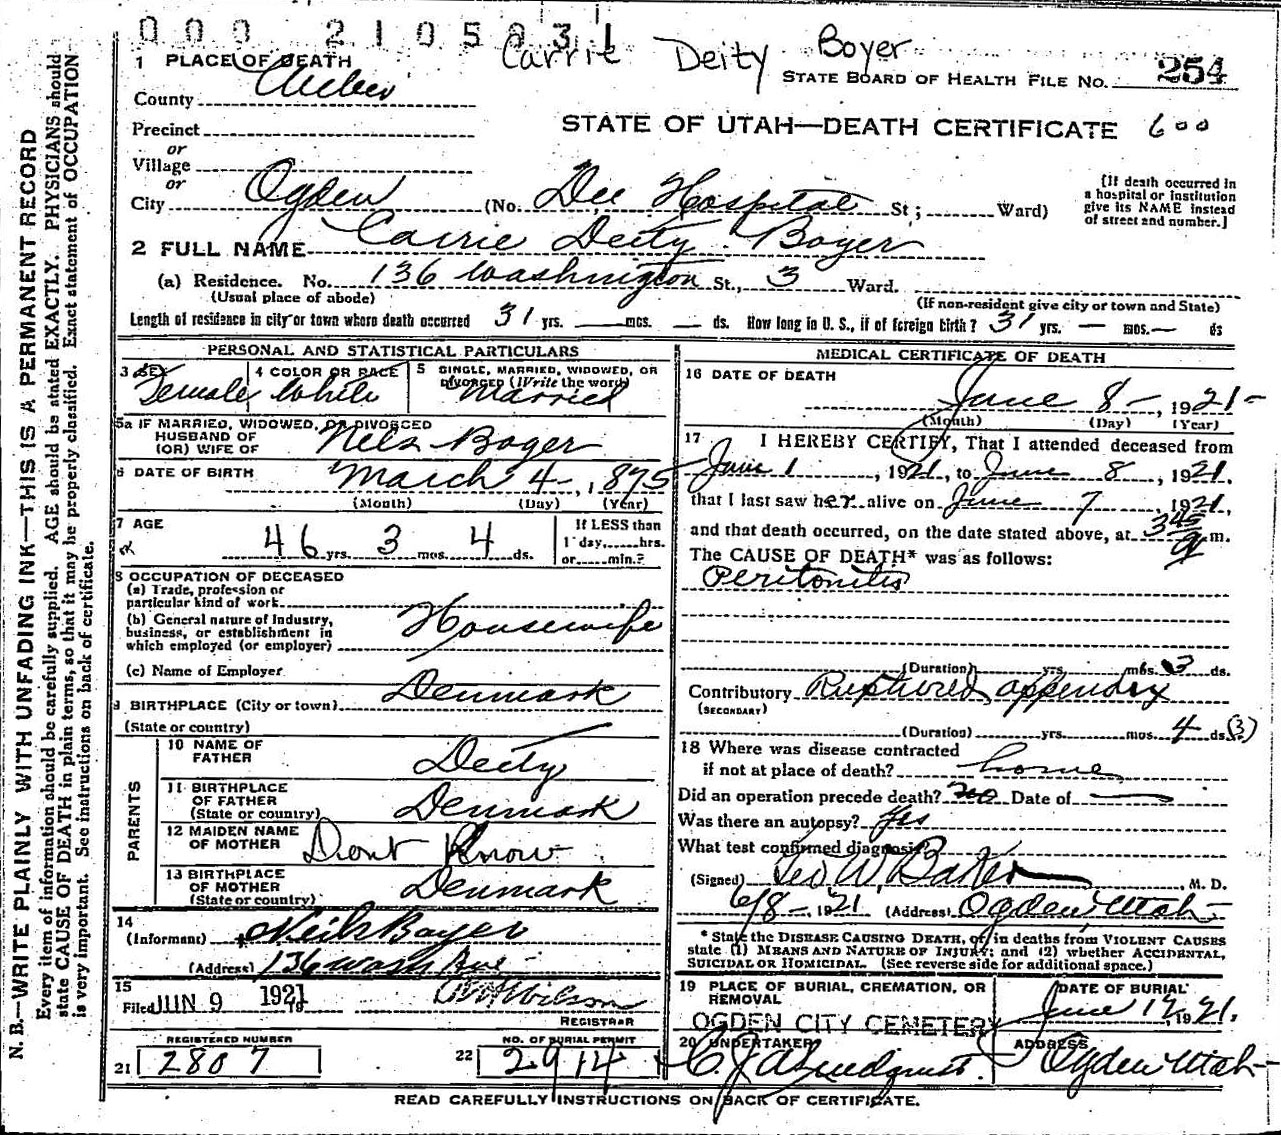 0002105031
Carrie Deity Boyer
1 PLACE OF DEATH
STATE BOARD OF HEALTH FILE NO. 254
County Weber
STATE OF UTAH—DEATH CERTIFICATE 600
Precinct
or
Village
or
City Ogden (No. Dee Hospital St.; Ward)
[If death occurred in
a hospital or institution
give its NAME instead
of street and number.]
2 FULL NAME Carrie Deity Boyer
(a) Residence. No. 136 Washington St., 3 Ward.
(Usual place of abode)
(If non-resident give city or town and State)
Length of residence in city or town where death occurred 31 yrs. — mos. — ds. How long in U. S., if of foreign birth? 31 yrs. — mos. — ds
PERSONAL AND STATISTICAL PARTICULARS
3 SEX Female
4 COLOR OR RACE White
5 SINGLE, MARRIED, WIDOWED, OR
DIVORCED (Write the word)
Married
5a IF MARRIED, WIDOWED, OR DIVORCED
HUSBAND OF
(OR) WIFE OF Nels Boyer
6 DATE OF BIRTH March 4-, 1875
(Month) (Day) (Year)
7 AGE
46 yrs. 3 mos. 4 ds.
If LESS than
1 day, hrs.
or min.?
8 OCCUPATION OF DECEASED
(a) Trade, profession or
particular kind of work
(b) General nature of Industry,
business, or establishment in
which employed (or employer) Housewife
(c) Name of Employer
9 BIRTHPLACE (City or town) Denmark
(State or country)
PARENTS
10 NAME OF
FATHER Deity
11 BIRTHPLACE
OF FATHER
(State or country) Denmark
12 MAIDEN NAME
OF MOTHER Dont Know
13 BIRTHPLACE
OF MOTHER
(State or country) Denmark
14
(Informant) Neils Boyer
(Address) 136 Wash Ave
15
Filed JUN 9 1921
Wilson
REGISTRAR
REGISTERED NUMBER
21 2807
NO. OF BURIAL PERMIT
22 2914
MEDICAL CERTIFICATE OF DEATH
16 DATE OF DEATH
June 8-, 1921-
(Month) (Day) (Year)
17 I HEREBY CERTIFY, That I attended deceased from
June 1, 1921, to June 8, 1921.
that I last saw her alive on June 7, 1921,
and that death occurred, on the date stated above, at 345 a m.
The CAUSE OF DEATH* was as follows:
Peritonitis
(Duration) yrs mos. 3 ds.
Contributory Ruptured appendix
(SECONDARY)
(Duration) yrs. mos. 4 ds. (3)
18 Where was disease contracted
if not at place of death? home
Did an operation precede death? no Date of —
Was there an autopsy? Yes
What test confirmed diagnosis
(Signed) Geo W. Baker, M. D.
6/8-, 1921 (Address) Ogden, Utah-
* State the DISEASE CAUSING DEATH, or, in deaths from VIOLENT CAUSES
state (1) MEANS AND NATURE OF INJURY; and (2) whether ACCIDENTAL,
SUICIDAL OR HOMICIDAL. (See reverse side for additional space.)
19 PLACE OF BURIAL, CREMATION, OR
REMOVAL
OGDEN CITY CEMETERY
DATE OF BURIAL
June 12, 1921.
20 UNDERTAKER
C. J. A. Lindquist
ADDRESS
Ogden Utah-
READ CAREFULLY INSTRUCTIONS ON BACK OF CERTIFICATE.
N. B.—WRITE PLAINLY WITH UNFADING INK—THIS IS A PERMANENT RECORD
Every item of information should be carefully supplied. AGE should be stated EXACTLY. PHYSICIANS should
state CAUSE OF DEATH in plain terms, so that it may be properly classified. Exact statement of OCCUPATION
is very important. See instructions on back of certificate.